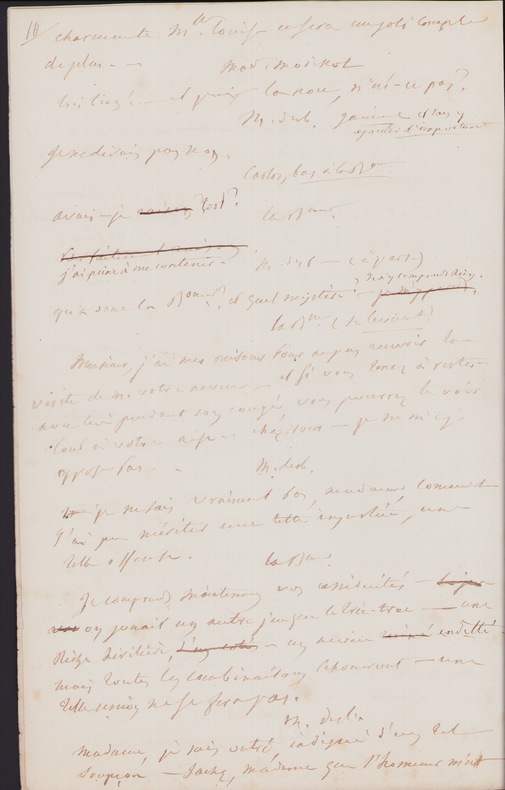 10
charmante Mlle Louise ce sera un joli couple
de plus. — —
Mad. Moirkot
— et puis la noce, n'est-ce pas?
M. desl.
Je ne dis pas non.
Carlos, bas à la Bnne
avais-je tort?
la Bnne
j'ai peine à me contenir.
M. desl — (à part)
qu'a donc la Bonne, et quel mystère! je n'y comprends rien.
la Bnne (se levant)
Monsieur, j'ai mes raisons pour ne pas recevoir la
visite de mr votre neveu — et si vous tenez à rester
avec lui pendant son congé, vous pourrez le voir
tout à votre aise. chez vous — je ne m'y
oppose pas. —
M. desl.
je ne sais vraiment pas, madame comment
j'ai pu mériter une telle injustice, une
telle offense.
la Bnne
Je comprends maintenant vos assiduités —
on jouait un autre jeu que le tric-trac — une
riche héritière, — un neveu endetté
mais toutes les combinaisons échoueront — une
telle union ne se fera pas.
M. desl.
Madame, je suis outré indigné d'un tel
soupçon — Sachez, madame que l'honneur m'est